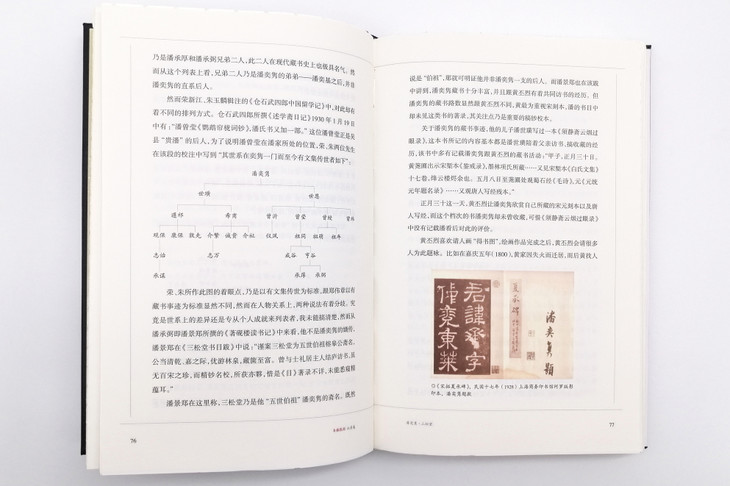 乃是潘承厚和潘承弼兄弟二人，此二人在现代藏书史上也极具名气。然
而从这个列表上看，兄弟二人乃是潘奕隽的弟弟——潘奕基之后，并非
潘奕隽的直系后人。
然而荣新江、朱玉麒辑注的《仓石武四郎中国留学记》中，对此却有
着不同的排列方式。仓石武四郎所撰《述学斋日记》1930年1月19日
中有：“潘曾莹《鹦鹉帘栊词钞》，潘氏书又加一部。”这位潘曾莹正是吴
县“贵潘”的后人，为了说明潘曾莹在潘家所处的位置，荣、朱两位先生
在该段的校注中写到“其世系在奕隽一门而至今有文集传世者如下”：
潘奕隽
世璜 世恩
遵祁 希甫 曾沂 曾莹 曾绶 曾玮
观保 康保 敦先 介繁 诚贵 介祉 仪凤 祖同 祖荫 祖年
志诒 志万 成谷 亨谷
承谋 承厚 承弼
荣、朱所作此图的着眼点，乃是以有文集传世为标准，跟郑伟章以有
藏书事迹为标准显然不同，然而在人物关系上，两种说法有着分歧。究
竟是世系上的差异还是专从个人成就来列表者，我未能搞清楚，然而从
潘承弼即潘景郑所撰的《著砚楼读书记》中来看，他不是潘奕隽的嫡传。
潘景郑在《三松堂书目跋》中说：“谨案三松堂为五世伯祖榕皋公斋名，
公当清乾、嘉之际，优游林泉，藏箧至富。曾与士礼居主人结庐访书，虽
无百宋之珍，而精钞名校，所获亦夥，惜是《目》著录不详，未能悉窥精
蕴耳。”
潘景郑在这里称，三松堂乃是他“五世伯祖”潘奕隽的斋名。既然
76
说是“伯祖”，那就可明证他并非潘奕隽一支的后人。而潘景郑也在该跋
中讲到，潘奕隽藏书十分丰富，并且跟黄丕烈有着共同访书的经历。但
潘奕隽的藏书路数显然跟黄丕烈不同，黄最为重视宋刻本，潘的书目中
却未见这类书的著录，其关注点乃是重要的稿抄校本。
关于潘奕隽的藏书事迹，他的儿子潘世璜写过一本《须静斋云烟过
眼录》，这本书所记的内容基本都是潘世璜陪着父亲访书、搞收藏的经
历，该书中多有记载潘奕隽跟黄丕烈的藏书活动：“甲子，正月三十日。
黄荛圃出示宋椠本《鉴戒录》，都林项氏所藏……又见宋椠本《白氏文集》
十七卷，绛云楼烬余也。五月八日至荛圃处观蜀石经《毛诗》，元《元统
元年题名录》……又观唐人写经残本。”
正月三十这一天，黄丕烈让潘奕隽欣赏自己所藏的宋元刻本以及唐
人写经，而这个档次的书潘奕隽却未曾收藏，可惜《须静斋云烟过眼录》
中没有记载潘看后对此的评价。
黄丕烈喜欢请人画“得书图”，绘画作品完成之后，黄丕烈会请很多
人为此题咏。比如在嘉庆五年（1800），黄家因失火而迁居，而后黄找人
君讳承字
仲兖东莱
夏承碑
潘奕隽题
◎《宋拓夏承碑》，民国十七年（1928）上海商务印书馆珂罗版影
印本，潘奕隽题款
潘奕隽：三松堂
77